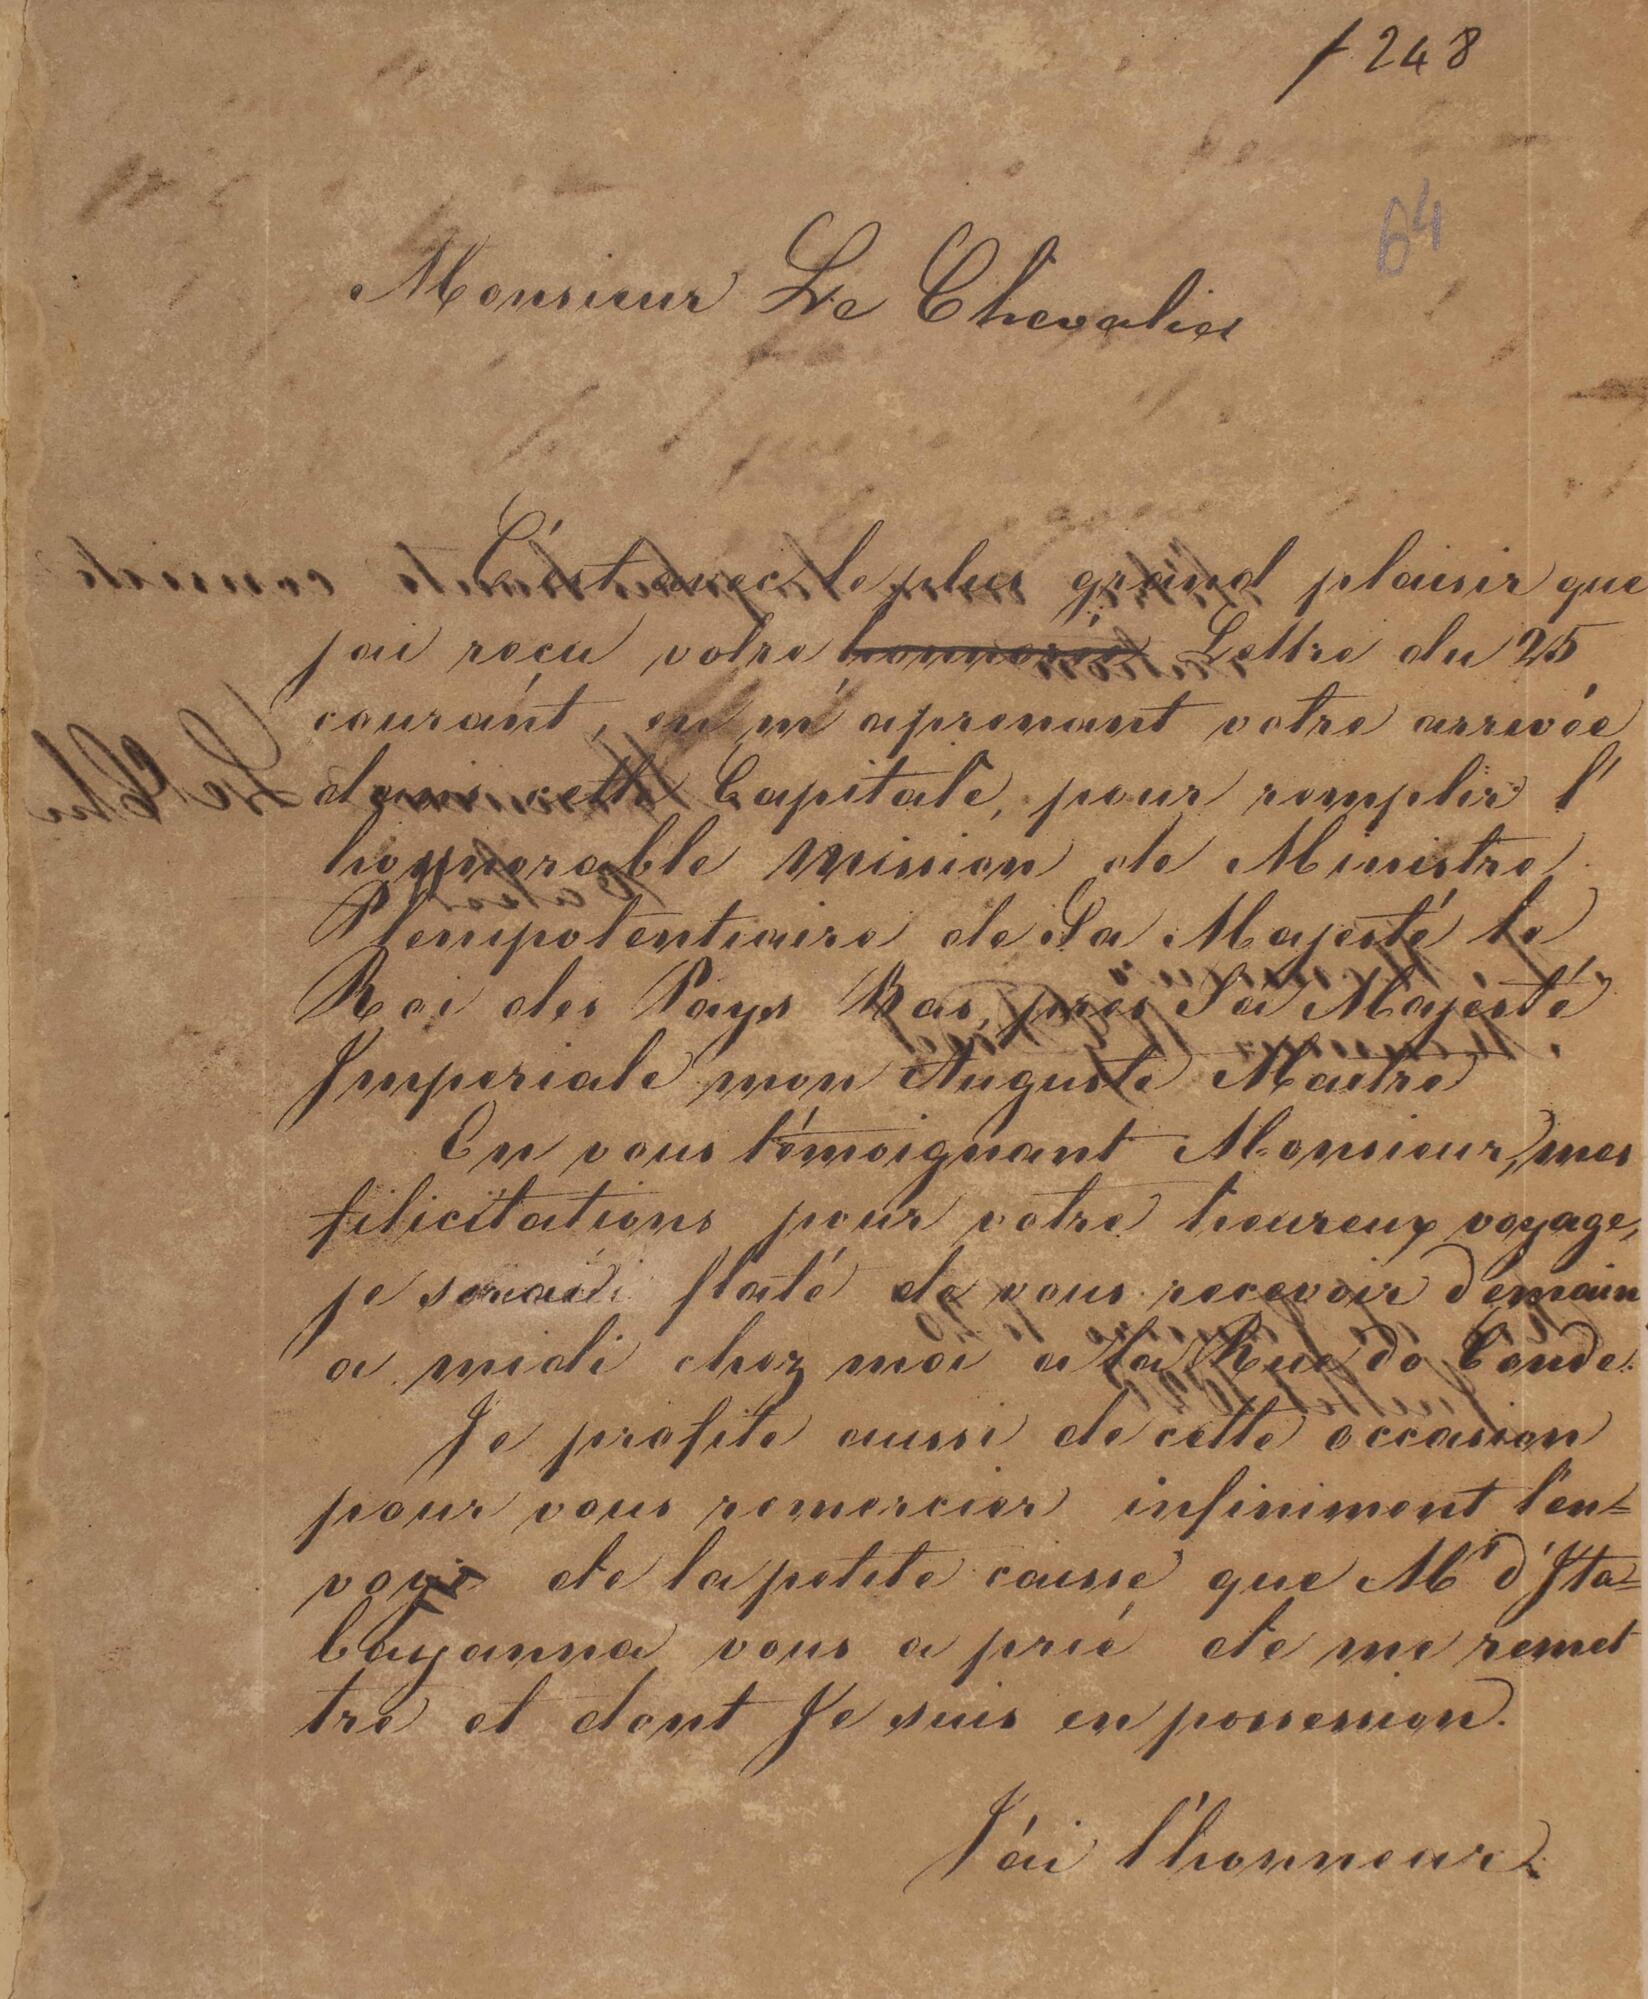 f 248
64
Monsieur Le Chevalier
C'est avec le plus grand plaisir que
j'ai reçu votre honnorée Lettre du 25
courant, en m'aprenant votre arrivée
dans cette Capitale, pour remplir l'
honnorable Mission de Ministre
Plenipotentiaire de Sa Majesté le
Roi des Pays Bas, près Sa Majesté
Imperiale mon Auguste Maitre
En vous témoignant Monsieur, mes
filicitations pour votre heureux voyage,
je serai flaté de vous recevoir demain
a midi chez moi a la Rue do Conde.
Je profite aussi de cette occasion
pour vous remercier infiniment l'en=
voye de la petite caisse que Mr d'Ita=
bayanna vous a prié de me remet
tre et dont Je suis en possession.
J'ai l'honneur